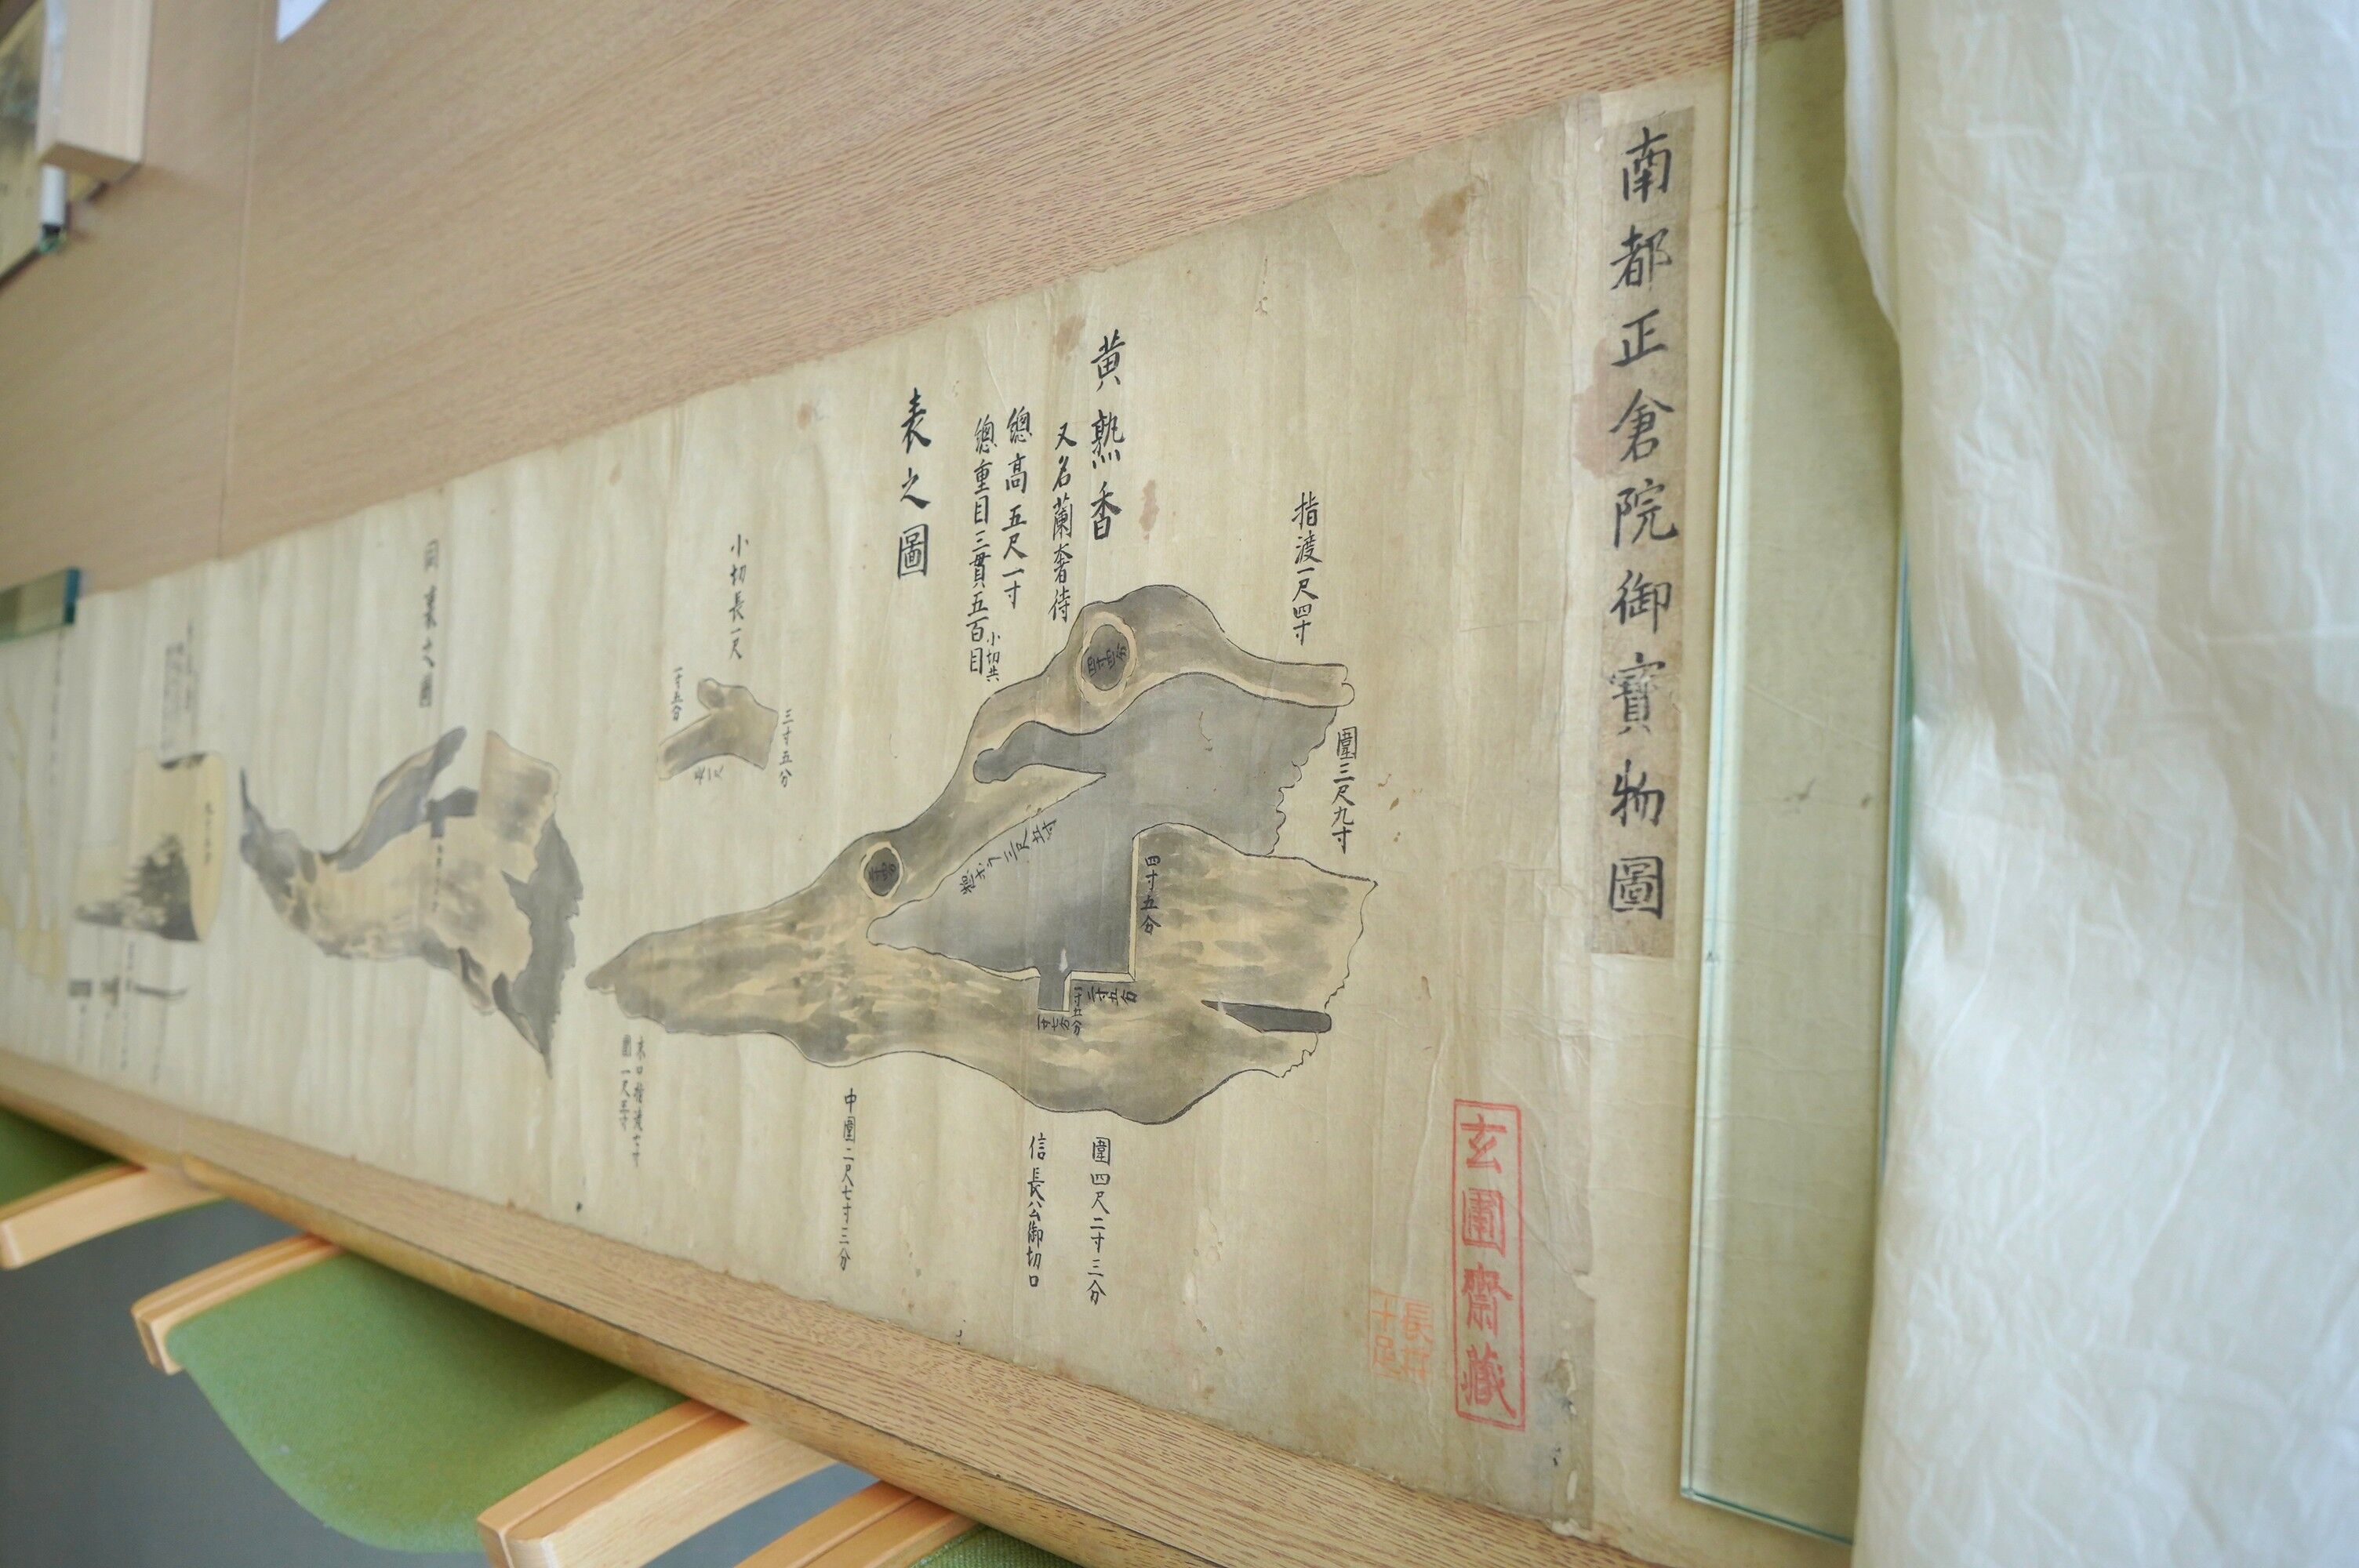 南都正倉院御寶物圖
玄圃齋藏
長井
十足
指渡一尺四寸
圍三尺九寸
黄熟香
又名蘭奢待
總高五尺一寸
總重目三貫五百目
小切共
四寸五分
二寸五分
一寸五分
一寸七分
圍四尺二寸三分
信長公御切口
表之圖
中圍二尺七寸三分
小切長一尺
三寸五分
一寸五分
同裏之圖